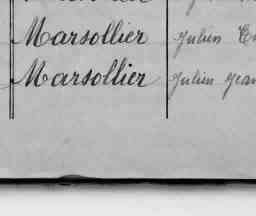 Marsollier Julien
Marsollier Julien Jean